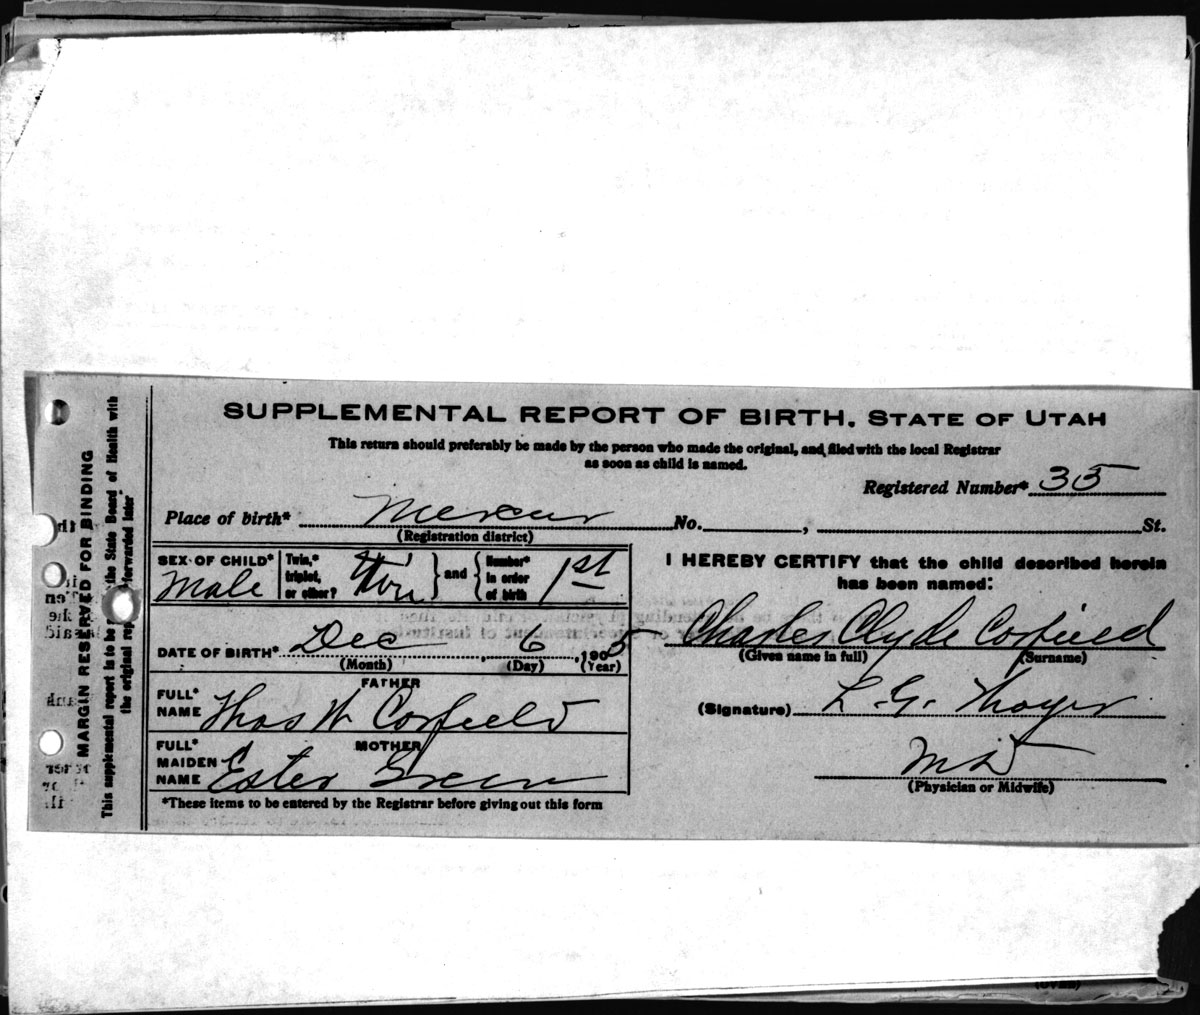 SUPPLEMENTAL REPORT OF BIRTH. STATE OF UTAH
This return should preferably be made by the person who made the original, and filed with the local Registrar
as soon as child is named.
Registered Number* 35
Place of birth* Mercur No. , St.
(Registration district)
SEX OF CHILD* Male
Twin,* triplet, or other? Twin
and
Number* in order of birth 1st
DATE OF BIRTH* Dec 6, 1905
(Month) (Day) (Year)
FATHER
FULL* NAME Thos W Corfield
MOTHER
FULL* MAIDEN NAME Ester Green
*These items to be entered by the Registrar before giving out this form
I HEREBY CERTIFY that the child described herein
has been named:
Charles Clyde Corfield
(Given name in full) (Surname)
(Signature) L. G. Thayer
MD
(Physician or Midwife)
MARGIN RESERVED FOR BINDING
This supplemental report is to be the State Board of Health with
the original forwarded later"
(OVER)